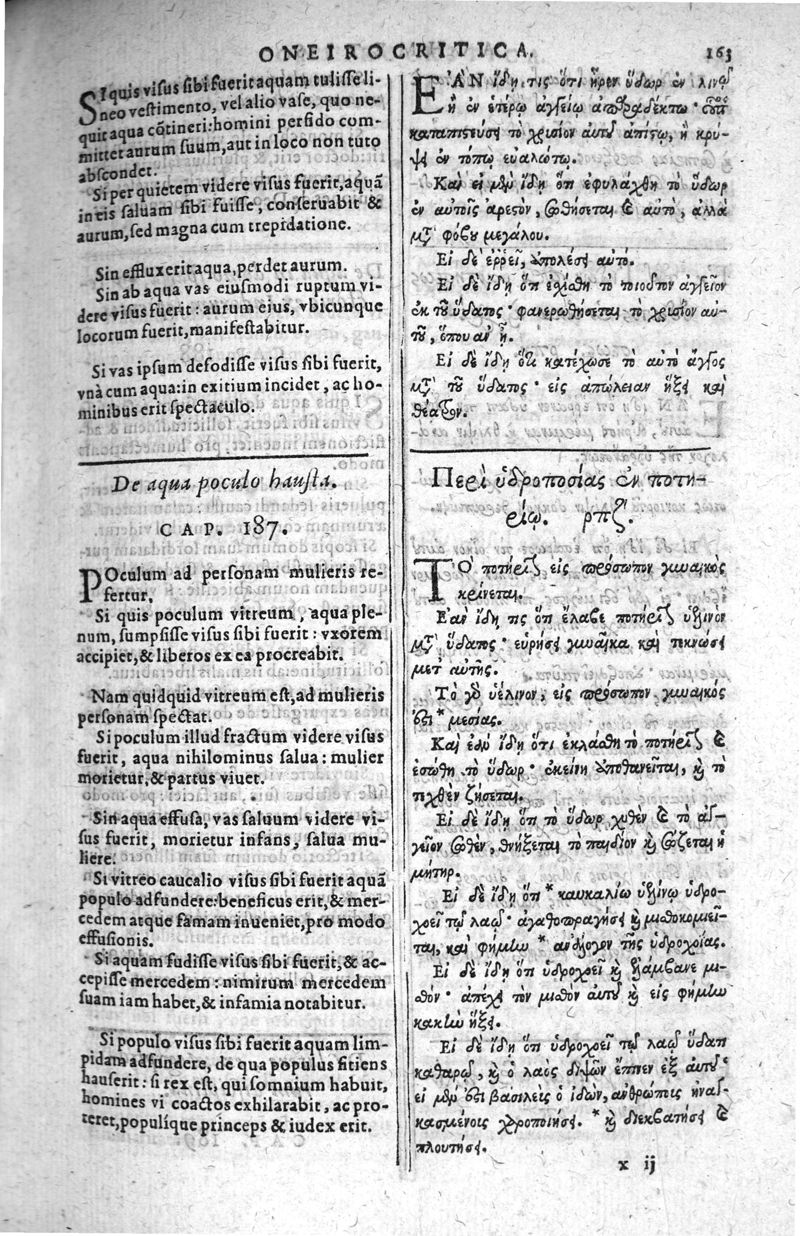 ONEIROCRITICA. 163
SI quis visus sibi fuerit aquam tulisse li-
neo vestimento, vel alio vase, quo ne-
quit aqua cõtineri: homini perfido com-
mittet aurum suum, aut in loco non tuto
abscondet.
Si per quietem videre visus fuerit, aquã
in eis saluam sibi fuisse, conseruabit &
aurum, sed magna cum trepidatione.
Sin effluxerit aqua, perdet aurum.
Sin ab aqua vas eiusmodi ruptum vi-
dere visus fuerit: aurum eius, vbicunque
locorum fuerit, manifestabitur.
Si vas ipsum defodisse visus sibi fuerit,
vnà cum aqua: in exitium incidet, ac ho-
minibus erit spectaculo.
De aqua poculo hausta.
CAP. 187.
POculum ad personam mulieris re-
fertur.
Si quis poculum vitreum, aqua ple-
num, sumpsisse visus sibi fuerit: vxorem
accipiet, & liberos ex ea procreabit.
Nam quidquid vitreum est, ad mulieris
personam spectat.
Si poculum illud fractum videre visus
fuerit, aqua nihilominus salua: mulier
morietur, & partus viuet.
Sin aqua effusa, vas saluum videre vi-
sus fuerit, morietur infans, salua mu-
liere.
Si vitreo caucalio visus sibi fuerit aquã
populo adfundere: beneficus erit, & mer-
cedem atque famam inueniet, pro modo
effusionis.
Si aquam fudisse visus sibi fuerit, & ac-
cepisse mercedem: nimirum mercedem
suam iam habet, & infamia notabitur.
Si populo visus sibi fuerit aquam lim-
pidam adfundere, de qua populus sitiens
hauserit: si rex est, qui somnium habuit,
homines vi coactos exhilarabit, ac pro-
teret, populique princeps & iudex erit.
ΕΑΝ ἴδῃ τις ὅτι ἦρεν ὕδωρ ἐν λινῷ
ἢ ἐν ἑτέρῳ ἀγγείῳ
καταπιστεύσει τὸ χρυσίον αὐτοῦ ἀπίστῳ, ἢ κρύ-
ψει ἐν τόπῳ εὐαλώτῳ.
Καὶ εἰ μὲν ἴδῃ ὅτι ἐφυλάχθη τὸ ὕδωρ
ἐν αὐτοῖς σωθήσεται καὶ αὐτὸ, ἀλλὰ
μετὰ φόβου μεγάλου.
Εἰ δὲ ἐρρεῖ, ἀπολέσει αὐτό.
Εἰ δὲ ἴδῃ ὅτι ἐσχίσθη τὸ τοιοῦτον ἀγγεῖον
ἐκ τοῦ ὕδατος· φανερωθήσεται τὸ χρυσίον αὐ-
τοῦ, ὅπου ἂν ᾖ.
Εἰ δὲ ἴδῃ ὅτι κατέχωσε τὸ αὐτὸ ἄγγος
μετὰ τοῦ ὕδατος· εἰς ἀπώλειαν ἥξει καὶ
θέατρον.
Περὶ ὑδροποσίας ἐν ποτη-
ρίῳ. ρπζ.
ΤΟ ποτήριον εἰς πρόσωπον γυναικὸς
κρίνεται.
Ἐὰν ἴδῃ τις ὅτι ἔλαβε ποτήριον ὑέλινον
μετὰ ὕδατος· εὑρήσει γυναῖκα καὶ τεκνώσει
μετ' αὐτῆς.
Τὸ γὰρ ὑέλινον, εἰς πρόσωπον γυναικός
ἐστι * μεσίας.
Καὶ ἐὰν ἴδῃ ὅτι ἐκλάσθη τὸ ποτήριον καὶ
ἐσώθη τὸ ὕδωρ· ἐκείνη ἀποθανεῖται, καὶ τὸ
τεχθὲν ζήσεται.
Εἰ δὲ ἴδῃ ὅτι τὸ ὕδωρ χυθὲν καὶ τὸ ἀγ-
γεῖον σωθὲν, θνήξεται τὸ παιδίον καὶ σώζεται ἡ
μήτηρ.
Εἰ δὲ ἴδῃ ὅτι * καυκαλίῳ ὑελίνῳ ὑδρο-
χοεῖ τῷ λαῷ· ἀγαθοπραγήσει καὶ μισθοκομιεῖ-
ται, καὶ φήμην * ἀνάλογον τῆς ὑδροχοίας.
Εἰ δὲ ἴδῃ ὅτι ὑδροχοεῖ καὶ λάμβανε μι-
σθόν· ἀπέχει τὸν μισθὸν αὐτοῦ καὶ εἰς φήμην
κακὴν ἥξει.
Εἰ δὲ ἴδῃ ὅτι ὑδροχοεῖ τῷ λαῷ ὕδατι
καθαρῷ, καὶ ὁ λαὸς διψῶν ἔπινεν ἐξ αὐτοῦ·
εἰ μὲν ἐστι βασιλεὺς ὁ ἰδὼν, ἀνθρώποις ἠναγ-
κασμένοις χαροποιήσει. * καὶ διεκβατήσει καὶ
πλουτήσει.
x ij